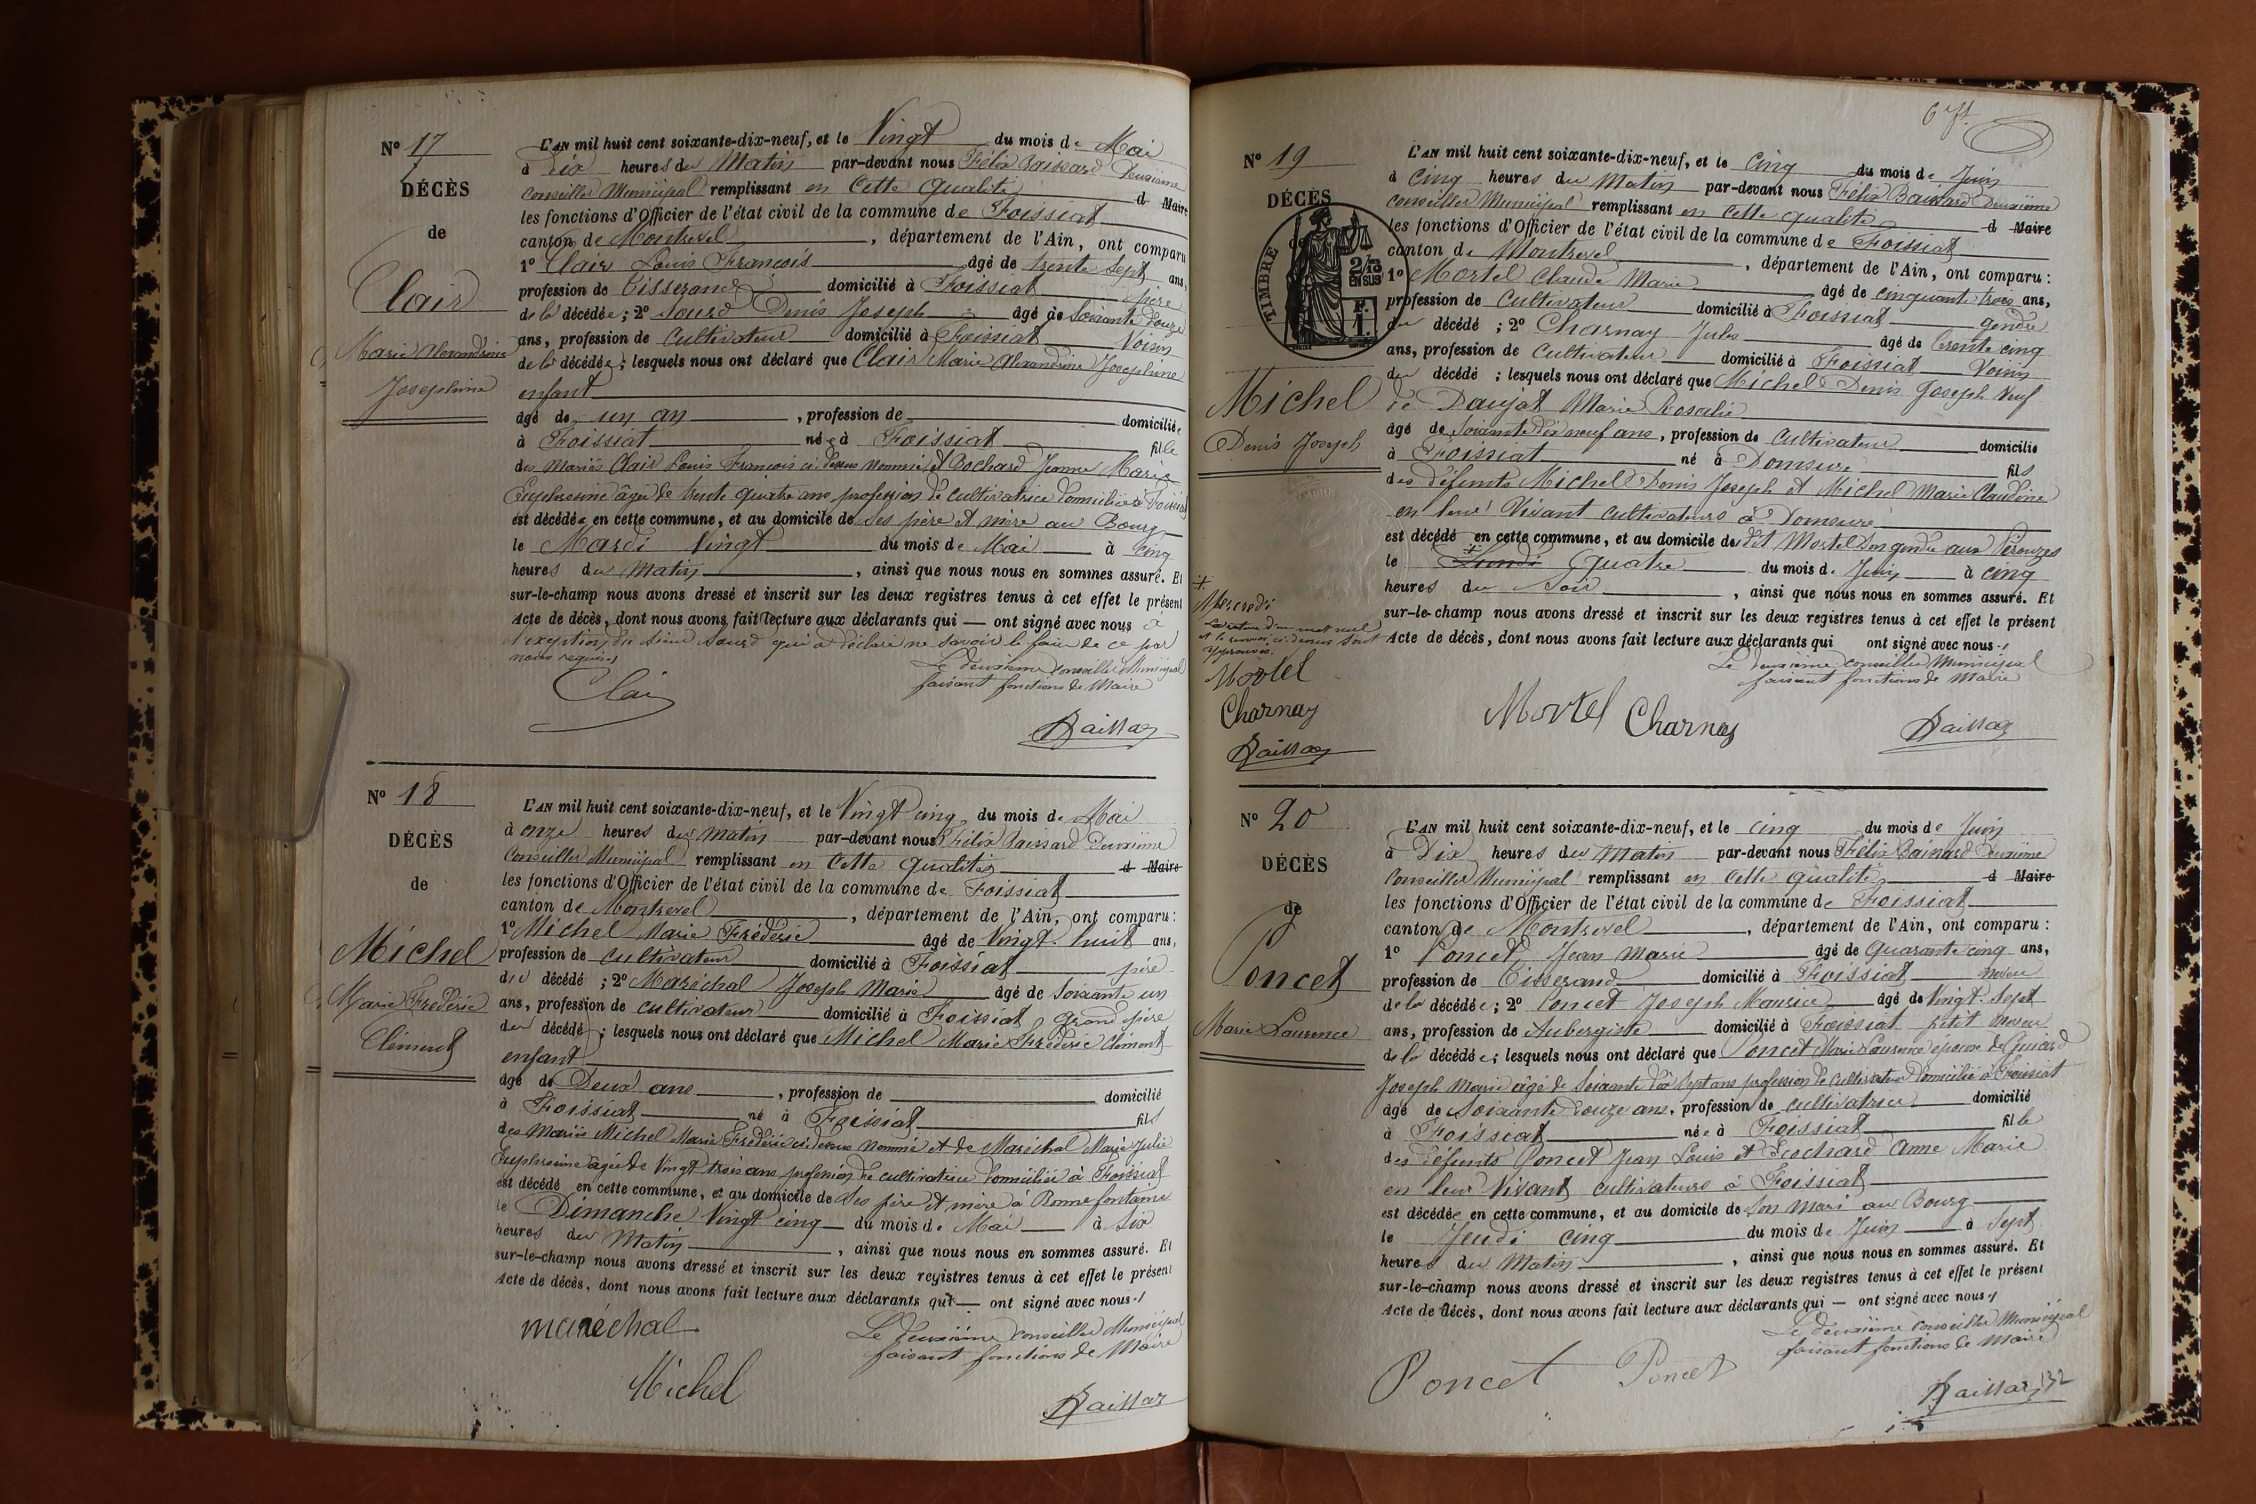 Nº 17
DÉCÈS
de
Clair
Marie Alexandrine
Josephine
L'AN mil huit cent soixante-dix-neuf, et le Vingt du mois de Mai
à Dix heures du Matin par-devant nous Félix Baissard Deuxième
Conseiller Municipal remplissant en Cette Qualité d Maire
les fonctions d'Officier de l'état civil de la commune de Foissiat
canton de Montrevel, département de l'Ain, ont comparu
1º Clair Louis François âgé de trente sept ans,
profession de Tisserand domicilié à Foissiat père
de la décédée; 2º Sourd Denis Joseph âgé de Soixante Douze
ans, profession de Cultivateur domicilié à Foissiat Voisin
de la décédée; lesquels nous ont déclaré que Clair Marie Alexandrine Josephine
enfant
âgé de un an, profession de domiciliée
à Foissiat née à Foissiat fille
des Mariés Clair Louis François ci dessus nommé et Bochard Jeanne Marie
Euphrosine âgée de trente quatre ans profession de cultivatrice domiciliée à Foissiat
est décédée en cette commune, et au domicile de ses père et mère au Bourg
le Mardi Vingt du mois de Mai à cinq
heures du Matin, ainsi que nous nous en sommes assuré. Et
sur-le-champ nous avons dressé et inscrit sur les deux registres tenus à cet effet le présent
Acte de décès, dont nous avons fait lecture aux déclarants qui — ont signé avec nous à
l'exception du sieur Sourd qui a déclaré ne savoir le faire de ce par
nous requis
Le deuxième Conseiller Municipal
faisant fonctions de Maire
Clair
Baissard
Nº 18
DÉCÈS
de
Michel
Marie Frédéric
Clément
L'AN mil huit cent soixante-dix-neuf, et le Vingt cinq du mois de Mai
à onze heures du matin par-devant nous Félix Baissard Deuxième
Conseiller Municipal remplissant en Cette Qualité d Maire
les fonctions d'Officier de l'état civil de la commune de Foissiat
canton de Montrevel, département de l'Ain, ont comparu :
1º Michel Marie Frédéric âgé de Vingt huit ans,
profession de cultivateur domicilié à Foissiat père
du décédé; 2º Maréchal Joseph Marie âgé de Soixante un
ans, profession de cultivateur domicilié à Foissiat Grand père
du décédé; lesquels nous ont déclaré que Michel Marie Frédéric Clément
enfant
âgé de Deux ans, profession de domicilié
à Foissiat né à Foissiat fils
des Mariés Michel Marie Frédéric ci dessus nommé et de Maréchal Marie Julie
Euphrosine âgée de Vingt trois ans profession de cultivatrice domiciliée à Foissiat
est décédé en cette commune, et au domicile de ses père et mère à Bonne fontaine
le Dimanche Vingt cinq du mois de Mai à Six
heures du Matin, ainsi que nous nous en sommes assuré. Et
sur-le-champ nous avons dressé et inscrit sur les deux registres tenus à cet effet le présent
Acte de décès, dont nous avons fait lecture aux déclarants qui — ont signé avec nous
Le deuxième Conseiller Municipal
faisant fonctions de Maire
maréchal
Michel
Baissard
Nº 19
DÉCÈS
de
TIMBRE
2/10
EN SUS
F.
1.
Michel
Denis Joseph
L'AN mil huit cent soixante-dix-neuf, et le Cinq du mois de Juin
à Cinq heures du Matin par-devant nous Félix Baissard Deuxième
Conseiller Municipal remplissant en Cette qualité d Maire
les fonctions d'Officier de l'état civil de la commune de Foissiat
canton de Montrevel, département de l'Ain, ont comparu :
1º Mortel Claude Marie âgé de cinquante trois ans,
profession de Cultivateur domicilié à Foissiat gendre
du décédé; 2º Charnay Jules âgé de trente cinq
ans, profession de Cultivateur domicilié à Foissiat Voisin
du décédé; lesquels nous ont déclaré que Michel Denis Joseph Veuf
de Daujat Marie Rosalie
âgé de Soixante dix neuf ans, profession de Cultivateur domicilié
à Foissiat né à Domsure fils
des défunts Michel Denis Joseph et Michel Marie Claudine
en leur Vivant cultivateurs à Domsure
est décédé en cette commune, et au domicile du dit Mortel son gendre aux Pérouzes
le + Lundi Quatre du mois de Juin à cinq
heures du Soir, ainsi que nous nous en sommes assuré. Et
sur-le-champ nous avons dressé et inscrit sur les deux registres tenus à cet effet le présent
Acte de décès, dont nous avons fait lecture aux déclarants qui ont signé avec nous
+
Mercredi
La rature d'un mot nul
et le renvoi ci-dessus sont
approuvés.
Mortel
Charnay
Baissard
Le deuxième conseiller Municipal
faisant fonctions de Maire
Mortel Charnay
Baissard
Nº 20
DÉCÈS
de
Poncet
Marie Laurence
L'AN mil huit cent soixante-dix-neuf, et le cinq du mois de Juin
à Dix heures du Matin par-devant nous Félix Baissard Deuxième
Conseiller Municipal remplissant en Cette Qualité d Maire
les fonctions d'Officier de l'état civil de la commune de Foissiat
canton de Montrevel, département de l'Ain, ont comparu :
1º Poncet Jean Marie âgé de Quarante cinq ans,
profession de Tisserand domicilié à Foissiat neveu
de la décédée; 2º Poncet Joseph Maurice âgé de Vingt Sept
ans, profession de Aubergiste domicilié à Foissiat petit neveu
de la décédée; lesquels nous ont déclaré que Poncet Marie Laurence épouse de
Joseph Marie âgé de Soixante dix sept ans profession de Cultivateur domicilié à Foissiat
âgé de Soixante douze ans, profession de cultivatrice domicilié
à Foissiat née à Foissiat fille
des défunts Poncet Jean Louis et Ecochard Anne Marie
en leur Vivant cultivateurs à Foissiat
est décédée en cette commune, et au domicile de son mari au Bourg
le Jeudi cinq du mois de Juin à sept
heures du Matin, ainsi que nous nous en sommes assuré. Et
sur-le-champ nous avons dressé et inscrit sur les deux registres tenus à cet effet le présent
Acte de décès, dont nous avons fait lecture aux déclarants qui — ont signé avec nous
Le deuxième conseiller Municipal
faisant fonctions de Maire
Poncet Poncet
Baissard
132